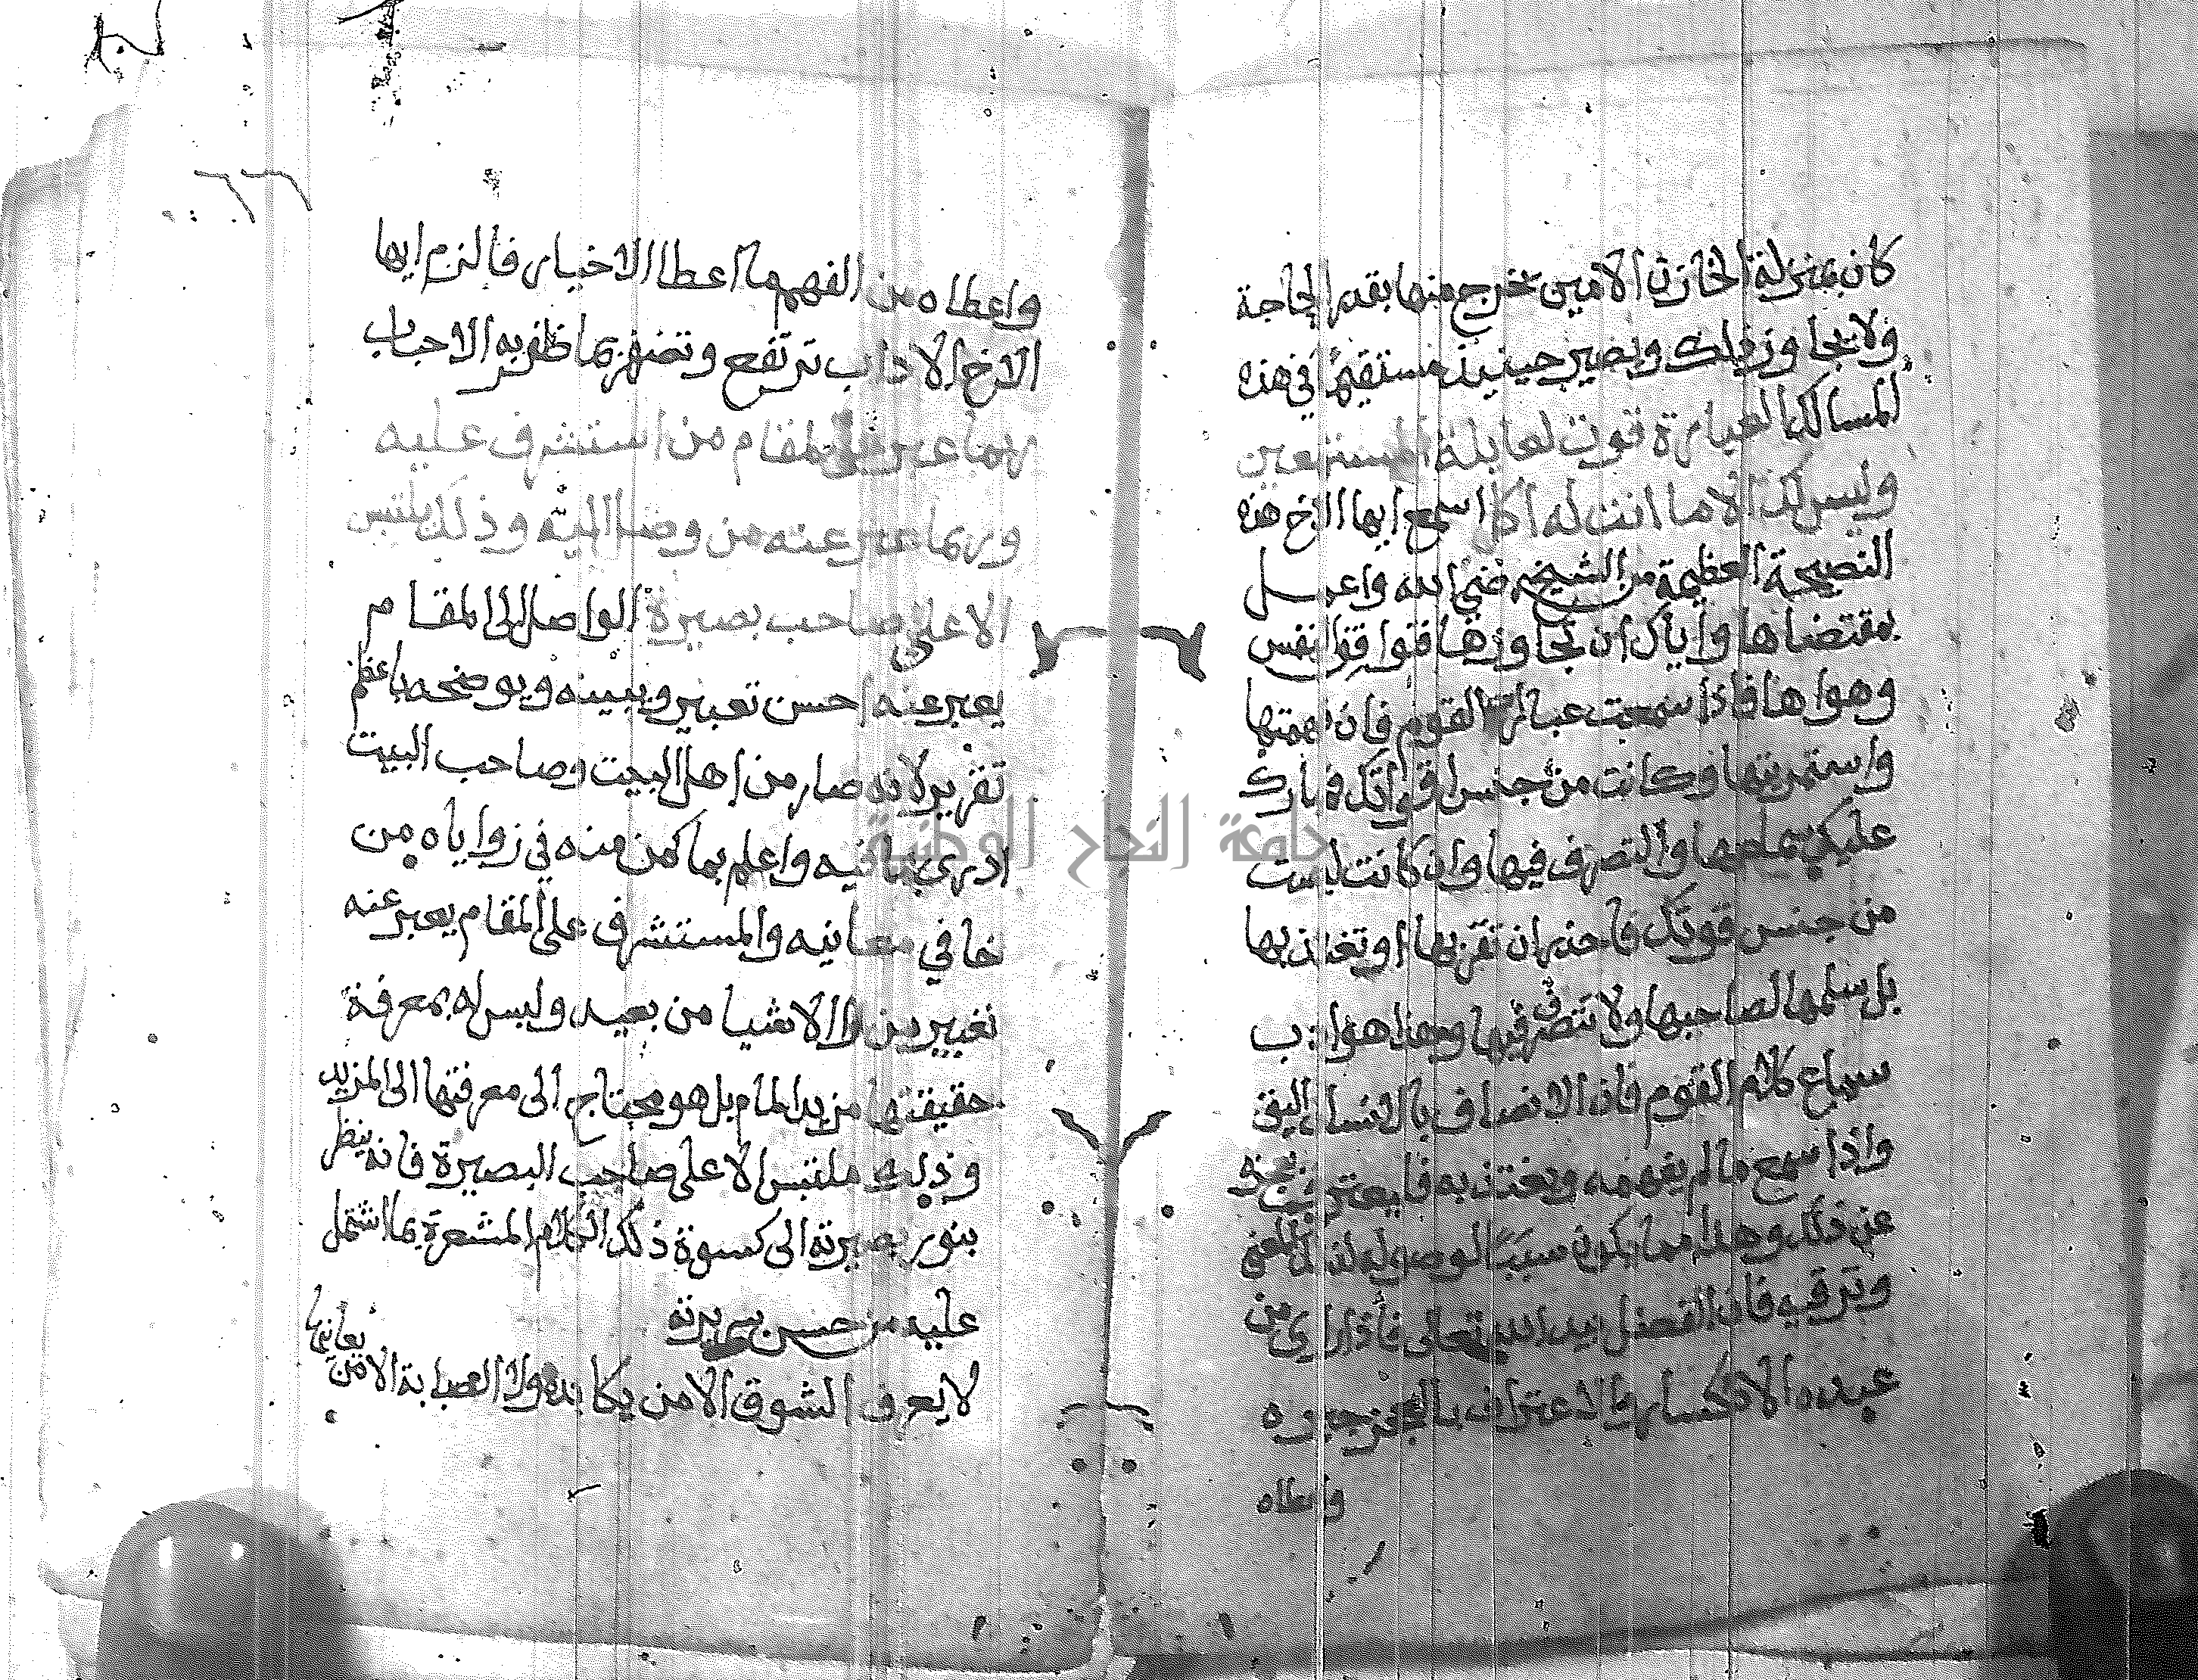 كان بمنزلة الخازن الامين يخرج منها بقدر الحاجة
ولا يجاوز ذلك ويصير حينيذ مستقيما في هذه
المسالك العبارة قوت لعايلة المستمعين
وليس لك الا ما انت له اكل اسمع ايها الاخ هذه
النصيحة العظيمة من الشيخ رضي الله واعمل
بمقتضاها واياك ان تجاوزها فتوافق النفس
وهواها فاذا سمعت عبارة القوم فان فهمتها
واستمريتها وكانت من جنس اقواتك فبارك
عليك بملحها والتصرف فيها وان كانت ليست
من جنس قوتك فاحذر ان تقربها او تغتذ بها
بل سلمها لصاحبها ولا تتصرف فيها وهذا هو ادب
سماع كلام القوم فان الانصاف بالانسان اليق
واذا سمع ما لم يفهمه ويغتذ به فليعترف بعجزه
عن ذلك وهذا مما يكون سببا لوصوله لذلك المعنى
وترقيه فان الفضل بيد الله تعالى فاذا راي من
عبده الانكسار والاعتراف بالعجز جبره
واعطاه
٦٦
واعطاه من الفهم ما اعطا الاخيار فالزم ايها
الاخ الاداب ترتفع وتضفر بما ظفر به الاحباب
ربما عبر على المقام من استشرف عليه
وربما عبر عنه من وصل اليه وذلك يلتبس
الا على صاحب بصيرة الواصل الى المقام
يعبر عنه احسن تعبير ويبينه ويوضحه باعظم
تقرير لانه صار من اهل البيت وصاحب البيت
ادرى بما فيه واعلم بما كمن منه في زواياه من
خافي معانيه والمستشرف على المقام يعبر عنه
تعبير من را الاشيا من بعيد وليس له بمعرفة
حقيقتها مزيد المام بل هو محتاج الى معرفتها الى المزيد
وذلك ملتبس الا على صاحب البصيرة فانه ينظر
بنور بصيرته الى كسوة ذلك الكلام المشعرة بما اشتمل
عليه من حسن سريرته
لا يعرف الشوق الا من يكابده ولا الصبابة الا من
يعانيها
جامعة النجاح الوطنية